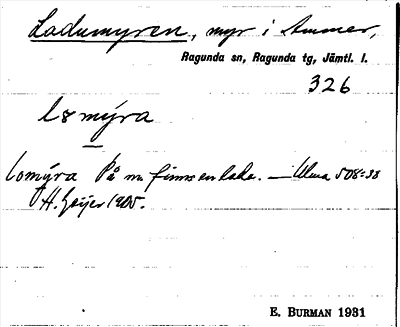 Lademyren, myr i Ammer,
Ragunda sn, Ragunda tg, Jämtl. l.
326
lomýra
lomýra På m. finns en lada. — Ulma 508:38
H. Geijer 1905.
E. BURMAN 1931